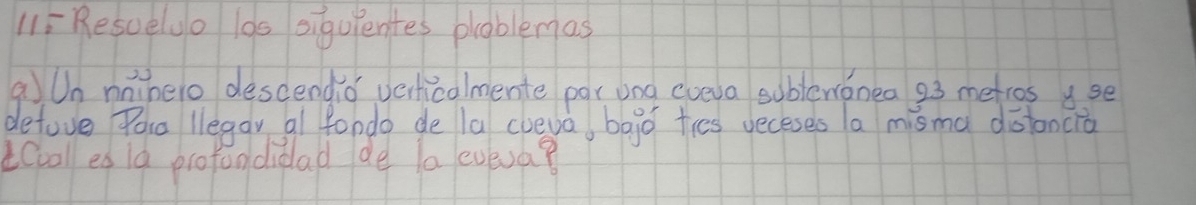 11- Resuelvo los siguientes problemas
a) Un minero descendió verticalmente por una cueva subterránea 93 metros y se
detuvo Para llegar al fondo de la cueva, bajó tres veceses la misma distancia
¿Cual es la profundidad de la cueva?